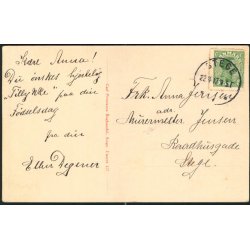 Kære Anna!
Du ønskes hjertelig
"Tillykke" paa din
Fødselsdag
fra din
Ellen Degener
Frk. Anna Jensen
adr.
Murermester Jensen
Raadhusgade
Stege
STEGE